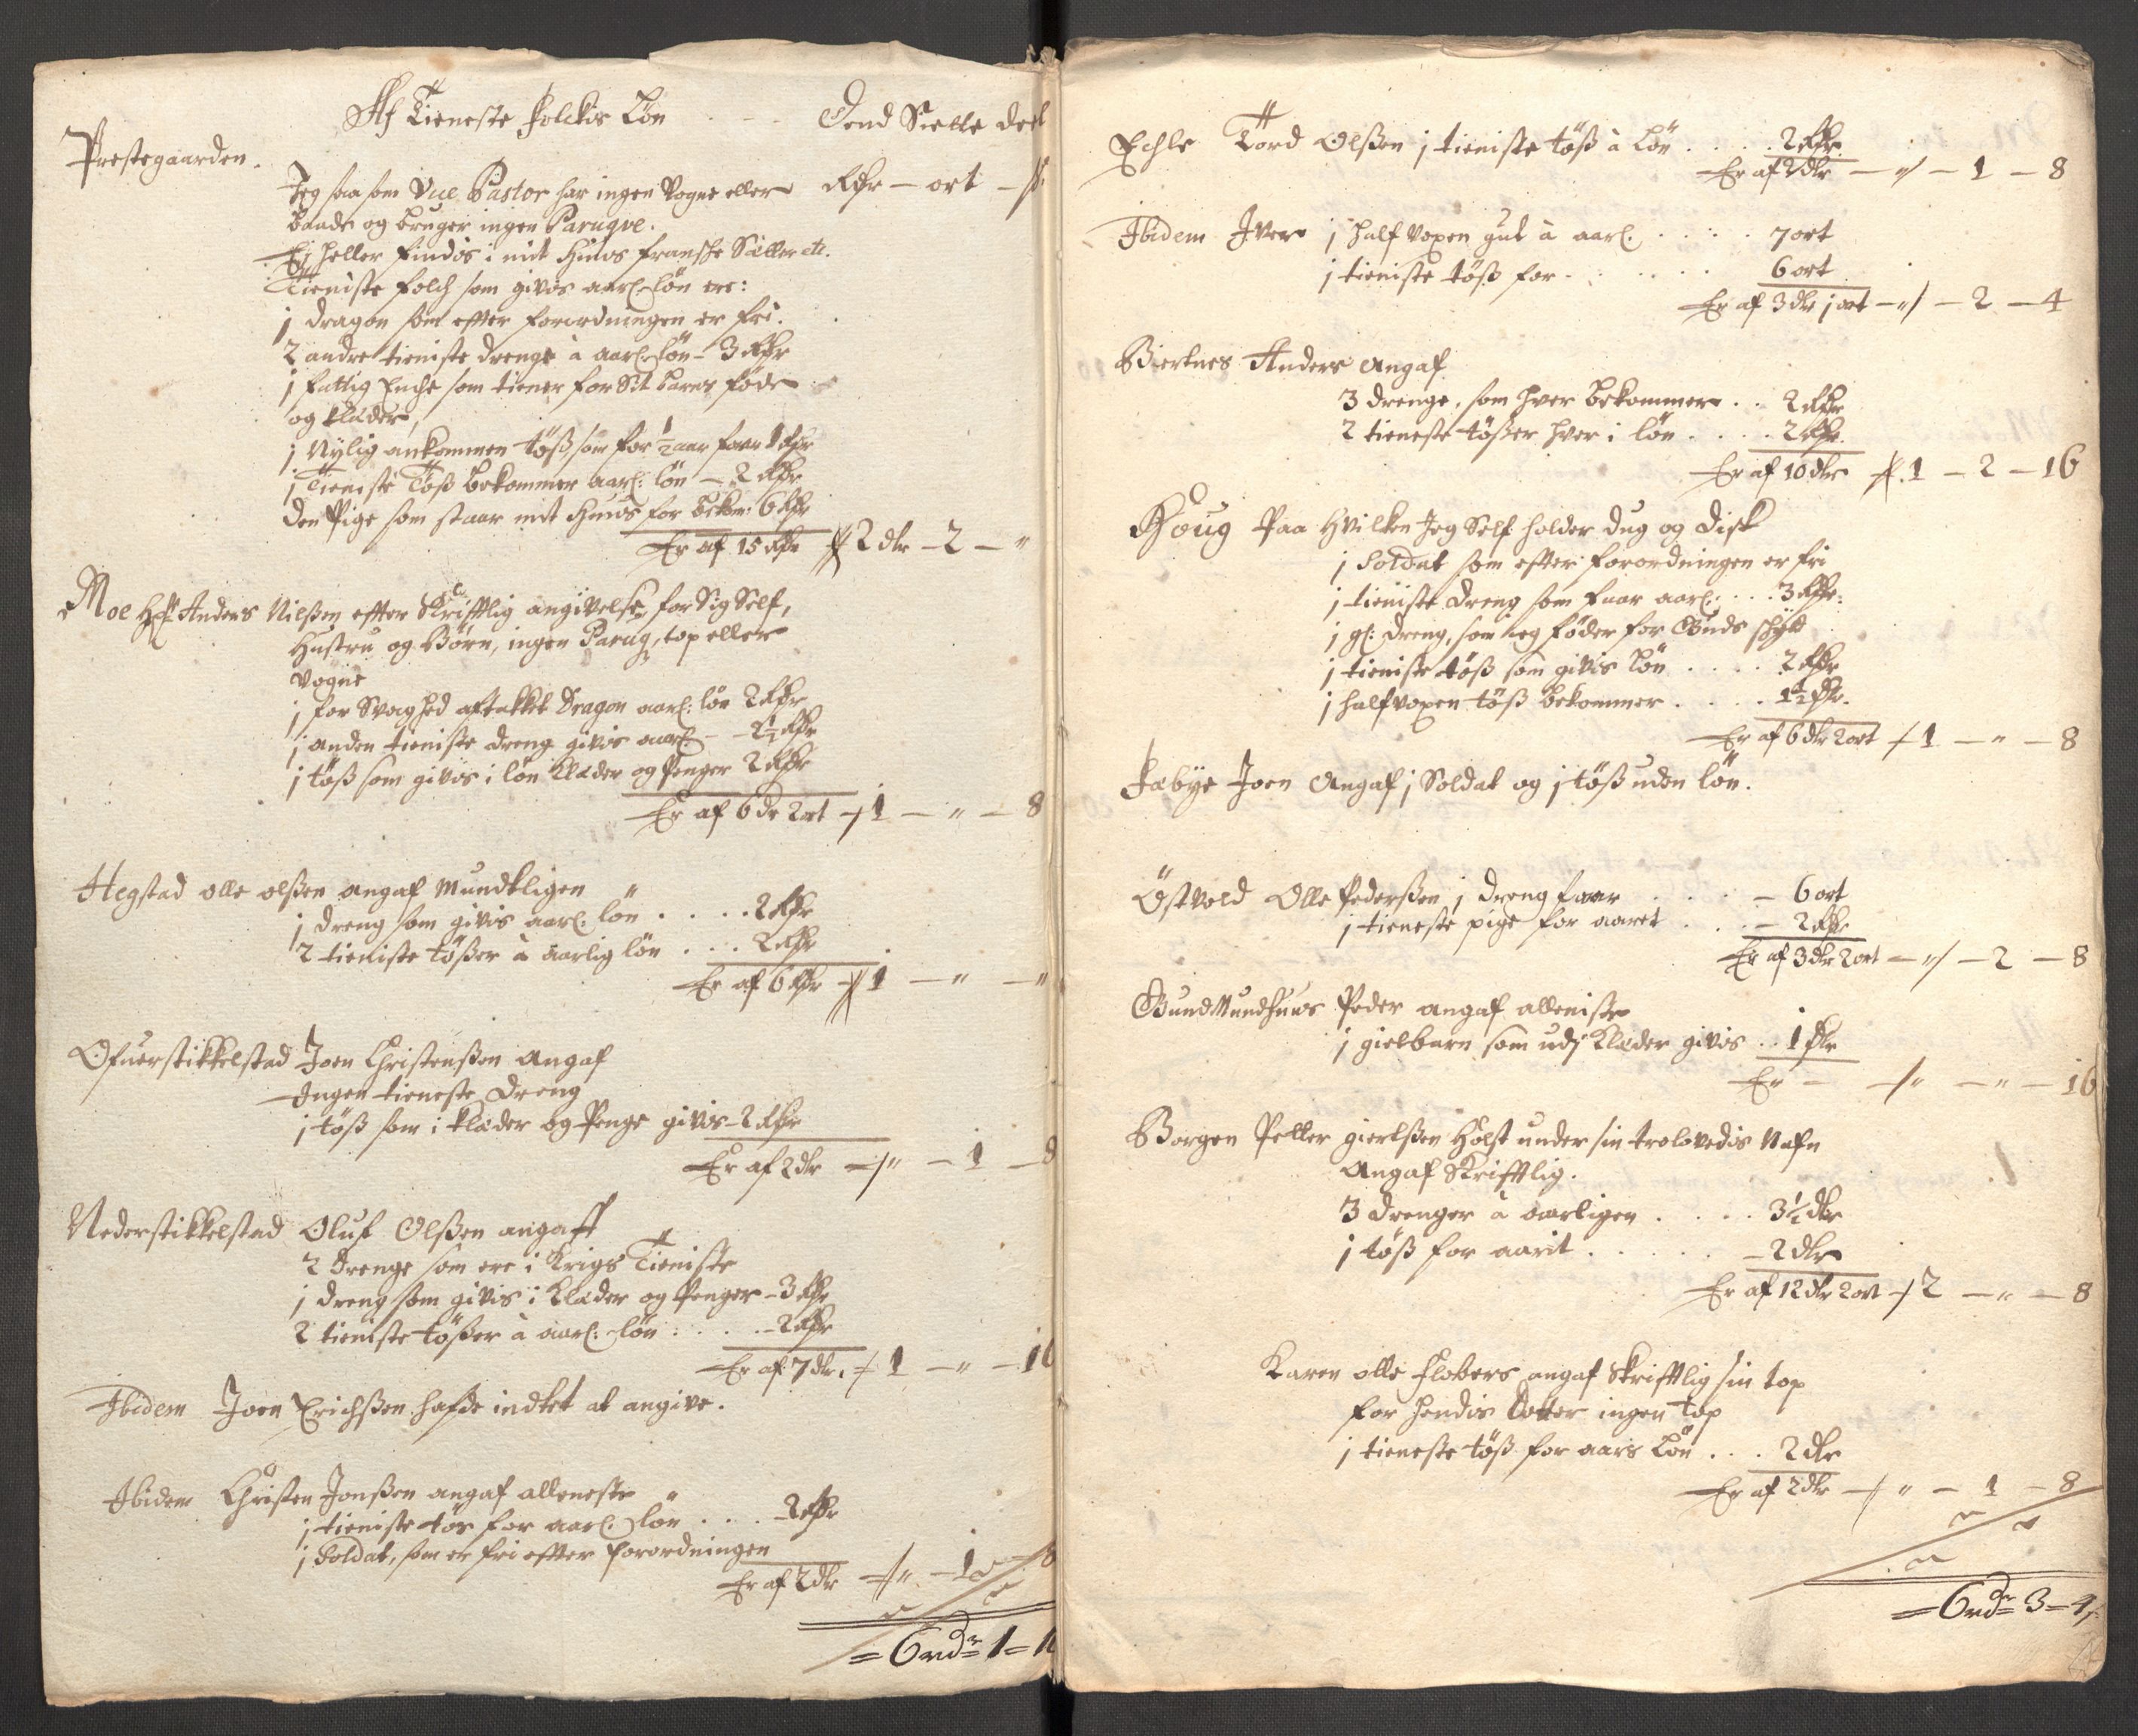 Af Tieneste folckis Løn - - - Dend Siette deel
Prestegaarden.
Jeg saa som Vice Pastor har ingen Vogne eller Rdr — ort — s
baade og bruger ingen Paruqve.
Ej heller findis i mit Huus franske Sætter etc.
Tieniste folch som givis aarl. løn ere:
j dragon som efter forordningen er fri.
2 andre tieniste drenge à aarl. løn - 3 Rdr
j fattig Enche som tiener for Sit barns føde
og klæder,
j Nylig ankommen töß, som for ½ aar faar 1 Rdr
j Tieniste Töß bekommer aarl: løn — 2 Rdr
den Pige som staar mit Huus for bekom: 6 Rdr
Er af 15 Rdr 2 dlr - 2 - "
Moe Hr Anders Nilßen efter Skrifftlig angivelse, for Sig Self,
Hustru og Børn, ingen Paruq, top eller
Vogne
j for Svaghed aftakket Dragon aarl: løn 2 Rdr
j anden tieniste dreng givis aarl. - - 2½ Rdr
j töß som givis i løn klæder og Penger 2 Rdr
Er af 6 dr 2 ort 1 — " — 8
Hegstad olle olßen angaf Mundtligen
j dreng som givis aarl. løn . . . . 2 Rdr
2 tieniste tößer à aarlig løn . . . 2 Rdr
Er af 6 Rdr 1 — " — "
Ofuerstikkelstad Joen Christenßen Angaf
Ingen tieneste Dreng
j töß som i klæder og Penge givis - 2 Rdr
Er af 2 dlr " — 1 — 8
Nederstikkelstad Oluf Olßen angaff
2 Drenge som ere i Krigs Tieniste
j dreng som givis i Klæder og Penger - 3 Rdr
2 tieniste tößer à aarl: løn . . . . - 2 Rdr
Er af 7 dlr. 1 — " — 16
Ibidem Joen Erichßen hafde indtet at angive.
Ibidem Christen Jonßen angaf alleneste
j tieniste tös for aarl. løn . . . - 2 Rdr
j Soldat, som er fri efter forordningen
Er af 2 dlr " — 1 — 8
= 6 rdr 1 = 16
Echle Tord Olßen j tieniste töß à Løn . . . . 2 Rdr
Er af 2 dlr — " — 1 — 8
Ibidem Iver j half voxen gut à aarl. . . . . 7 ort
j tieniste töß for . . . . . . 6 ort
Er af 3 dlr 1 ort — " — 2 — 4
Biertnes Anders Angaf
3 drenge, som hver bekommer . . 2 Rdr
2 tieneste tößer hver i løn . . . . 2 Rdr.
Er af 10 dlr 1 — 2 — 16
Houg Paa Hvilken Jeg Self holder dug og Disk
j Soldat som efter forordningen er fri
j tieniste Dreng som faar aarl. . . . 3 Rdr.
j gl: dreng, som ieg føder for Guds skyld
j tieniste töß som givis løn . . . . 2 Rdr
j halfvoxen töß bekommer . . . . 1½ Rdr.
Er af 6 dlr 2 ort 1 — " — 8
Fæbye Joen Angaf j Soldat og j töß uden løn.
Östvold Olle Pederßen j dreng faar . . . . — 6 ort
j tieneste pige for aaret . . . — 2 Rdr
Er af 3 dlr 2 ort — " — 2 — 8
Gundmundhuus Peder angaf alleniste
j gielbarn som udj klæder givis . . 1 Rdr
Er — " — " — 16
Borgen Petter gierlßen Holst under sin trolovedis Nafn
Angaf Skrifftlig.
3 drenger à aarligen . . . . 3½ dlr
j töß for aarit . . . . . — 2 dlr
Er af 12 dlr 2 ort 2 — " — 8
Karen olle Flobers angaf Skrifftlig sin top
for hendis Dotter ingen top
j tieneste töß for aars Løn . . . 2 dlr
Er af 2 dlr " — 1 — 8
= 6 rdr 3 = 4 s: